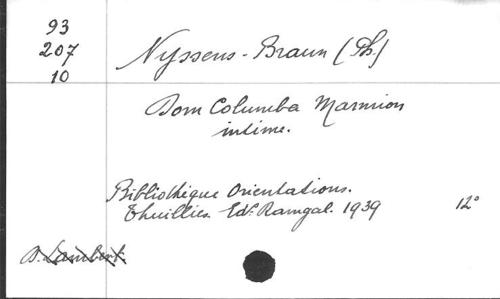 93
207
10
Nyssens-Braun (Ph.)
Dom Columba Marmion
intime.
Bibliothèque Orientations.
Thuillies. Edt. Ramgal. 1939 12°
D. Lambert.